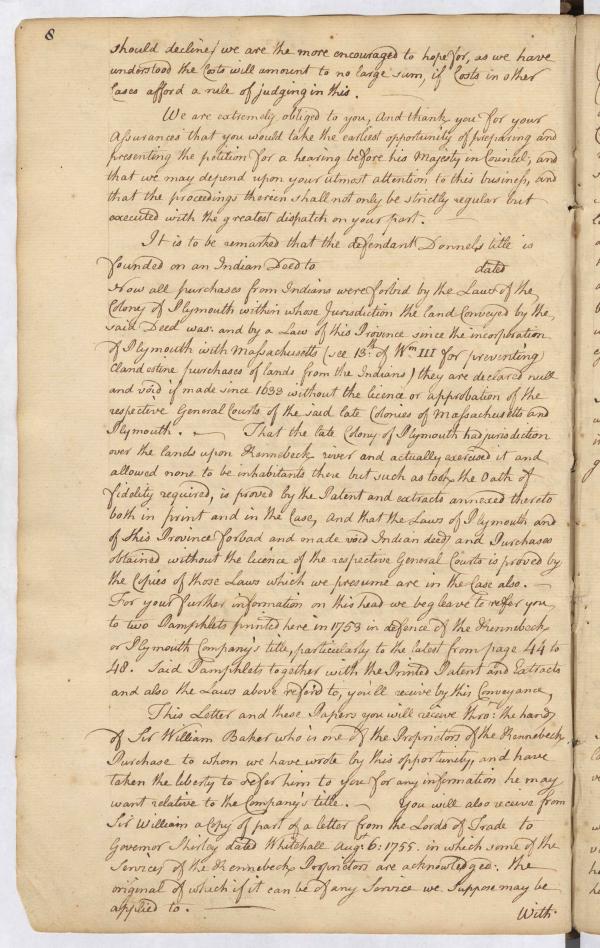 8
should decline) we are the more encouraged to hope for, as we have
understood the Costs will amount to no large sum, if Costs in other
Cases afford a rule of judging in this.
We are extremely obliged to you, And thank you for your
Assurances that you would take the earliest opportunity of preparing and
presenting the petition for a hearing before his Majesty in Council, and
that we may depend upon your utmost attention to this business, and
that the proceedings therein shall not only be strictly regular but
executed with the greatest dispatch on your part. —
It is to be remarked that the defendant Donnels title is
founded on an Indian Deed to dated
Now all purchases from Indians were forbid by the Laws of the
Colony of Plymouth within whose Jurisdiction the land Conveyed by the
said Deed was: and by a Law of this Province since the incorporation
of Plymouth with Massachusetts (see 13th. of Wm III for preventing
Clandestine purchases of lands from the Indians) they are declared null
and void if made since 1633 without the licence or approbation of the
respective General Courts of the said late Colonies of Massachusetts and
Plymouth. — That the late Colony of Plymouth had jurisdiction
over the lands upon Kennebeck river and actually exercised it and
allowed none to be inhabitants there but such as took the Oath of
fidelity required, is proved by the Patent and extracts annexed thereto
both in print and in the Case, And that the Laws of Plymouth and
of this Province forbad and made void Indian deeds and Purchases
obtained without the licence of the respective General Courts is proved by
the Copies of those Laws which we presume are in the Case also. —
For your further information on this head we beg leave to refer you
to two Pamphlets printed here in 1753 in defence of the Kennebeck
or Plymouth Company's title, particularly to the latest from page 44 to
48. Said Pamphlets together with the Printed Patent and Extracts
and also the Laws above referd to, you'll receive by this Conveyance,
This Letter and these Papers you will receive thro: the hands
of Sir William Baker who is one of the Proprietors of the Kennebeck
Purchase to whom we have wrote by this opportunity, and have
taken the liberty to refer him to you for any information he may
want relative to the Company's title. — You will also receive from
Sir William a Copy of part of a letter from the Lords of Trade to
Governor Shirley dated Whitehall Augt. 6: 1755. in which some of the
Services of the Kennebeck Proprietors are acknowledged: the
original of which if it can be of any Service we Suppose may be
applied to. —
With